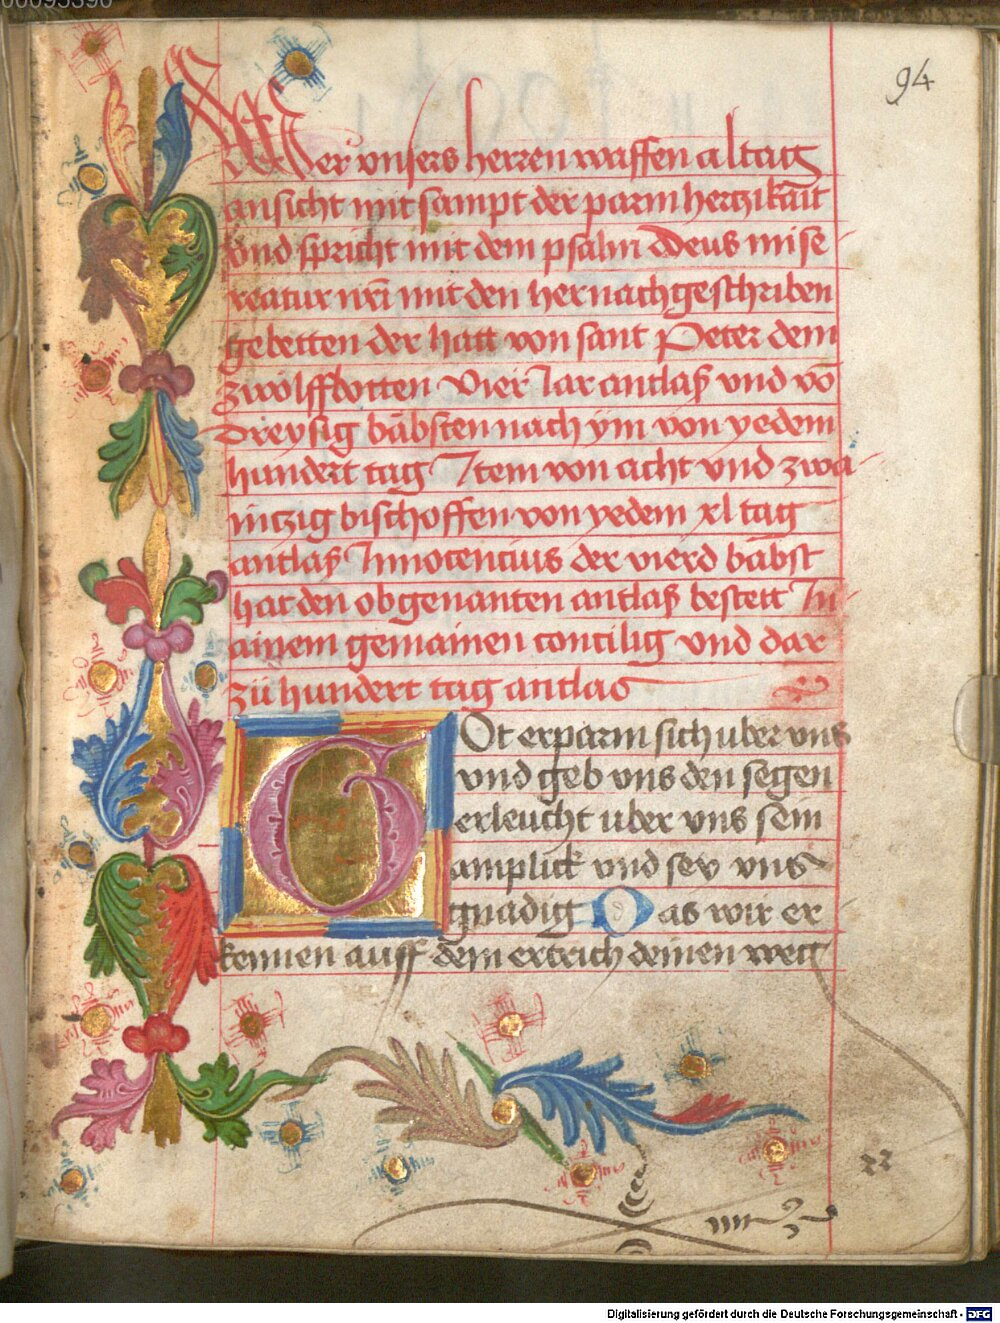 00095390
94
Wer vnsers herren waffen altag
ansicht mit sampt der parmhertzikait
vnd spricht mit dem psalm Deus mise
reatur nr̄i mit den hernachgeschriben
gebetten der hatt von sant Peter dem
zwölffbotten vier Jar antlaß vnd vō
dreysig bäbsten nach ym von yedem
hundert tag Jtem von acht vnd zwa
intzig bischoffen von yedem xl tag
antlaß Jnnocencius der vierd bäbst
hat den obgenanten antlaß bestett Jn
ainem gemainen concilig vnd dar
zü hundert tag antlas
Got erparm sich uber vns
vnd geb vns den segen
erleucht uber vns sein
amplick vnd sey vns
gnädig Das wir er
kennen auff dem extrich deinen weg
Digitalisierung gefördert durch die Deutsche Forschungsgemeinschaft - DFG